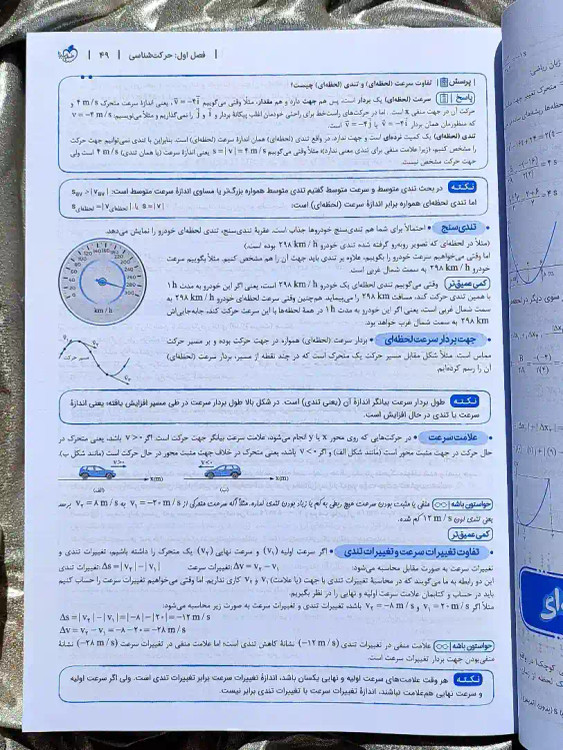 فصل اول: حرکت‌شناسی | ۴۹
پرسش تفاوت سرعت (لحظه‌ای) و تندی (لحظه‌ای) چیست؟
پاسخ سرعت (لحظه‌ای) یک بردار است. پس هم جهت دارد و هم مقدار. مثلاً وقتی می‌گوییم v = −۴i، یعنی اندازهٔ سرعت متحرک ۴ m/s و
حرکت آن در جهت منفی x است. اما در حرکت‌های راست‌خط برای راحتی خودمان اغلب بردار i و j را نمی‌گذاریم و مثلاً می‌نویسیم: v = −۴ m/s
که منظورمان همان بردار v = −۴i یا v = −۴j است.
تندی (لحظه‌ای) یک کمیت نرده‌ای است و جهت ندارد. در واقع تندی (لحظه‌ای) همان اندازهٔ سرعت (لحظه‌ای) است. بنابراین با تندی نمی‌توانیم جهت حرکت
را مشخص کنیم، (زیرا علامت منفی برای تندی معنی ندارد)؛ مثلاً وقتی می‌گوییم s = |v| = ۴ m/s یعنی اندازهٔ سرعت (یا همان تندی) ۴ m/s است ولی
جهت حرکت مشخص نیست.
نکته در بحث تندی متوسط و سرعت متوسط گفتیم تندی متوسط همواره بزرگ‌تر یا مساوی اندازهٔ سرعت متوسط است: sav ≥ |vav|
اما تندی لحظه‌ای همواره برابر اندازهٔ سرعت (لحظه‌ای) است: s = |v| یا |لحظه‌ای v| = لحظه‌ای s
تندی‌سنج • احتمالاً برای شما هم تندی‌سنج خودروها جذاب است. عقربهٔ تندی‌سنج، تندی لحظه‌ای خودرو را نمایش می‌دهد.
(مثلاً در لحظه‌ای که تصویر روبه‌رو گرفته شده تندی خودرو ۲۹۸ km/h بوده است)
اما وقتی می‌خواهیم سرعت خودرو را بگوییم، علاوه بر تندی باید جهت آن را هم مشخص کنیم. مثلاً بگوییم سرعت
خودرو ۲۹۸ km/h به سمت شمال غربی است.
کمی عمیق‌تر وقتی می‌گوییم تندی لحظه‌ای یک خودرو ۲۹۸ km/h است، یعنی اگر این خودرو به مدت ۱ h
با همین تندی حرکت کند، مسافت ۲۹۸ km را می‌پیماید. هم‌چنین وقتی سرعت لحظه‌ای خودرو ۲۹۸ km/h به
سمت شمال غربی است، یعنی اگر این خودرو به مدت ۱ h در همهٔ لحظه‌ها با این سرعت حرکت کند، جابه‌جایی‌اش
۲۹۸ km به سمت شمال غرب خواهد بود.
km/h
جهت بردار سرعت لحظه‌ای • بردار سرعت (لحظه‌ای) همواره در جهت حرکت بوده و بر مسیر حرکت
مماس است. مثلاً شکل مقابل مسیر حرکت یک متحرک است که در چند نقطه از مسیر، بردار سرعت (لحظه‌ای)
را رسم کرده‌ایم.
مسیر حرکت
نکته طول بردار سرعت بیانگر اندازهٔ آن (یعنی تندی) است. در شکل بالا طول بردار سرعت در طی مسیر افزایش یافته؛ یعنی اندازهٔ
سرعت یا تندی در حال افزایش است.
علامت سرعت • در حرکت‌هایی که روی محور x یا y انجام می‌شود، علامت سرعت بیانگر جهت حرکت است اگر v > ۰ باشد، یعنی متحرک در
حال حرکت در جهت مثبت محور است (مانند شکل الف) و اگر v < ۰ باشد، یعنی متحرک در خلاف جهت مثبت محور در حال حرکت است (مانند شکل ب).
v > ۰ x(m) (الف)
v < ۰ x(m) (ب)
حواستون باشه منفی یا مثبت بودن سرعت هیچ ربطی به کم یا زیاد بودن تندی نداره. مثلاً اگه سرعت متحرکی از v۱ = −۲۰ m/s به v۲ = ۸ m/s برسه
یعنی تندی اون ۱۲ m/s کم شده.
کمی عمیق‌تر
تفاوت تغییرات سرعت و تغییرات تندی • اگر سرعت اولیه (v۱) و سرعت نهایی (v۲) یک متحرک را داشته باشیم، تغییرات تندی و
تغییرات سرعت به صورت مقابل محاسبه می‌شود: Δv = v۲ − v۱ : تغییرات سرعت Δs = |v۲| − |v۱| : تغییرات تندی
این دو رابطه به ما می‌گویند که در محاسبهٔ تغییرات تندی با جهت (یا علامت) v۱ و v۲ کاری نداریم. اما وقتی می‌خواهیم تغییرات سرعت را حساب کنیم
باید در حساب و کتابمان علامت سرعت اولیه و نهایی را در نظر بگیریم.
مثلاً اگر v۱ = ۲۰ m/s و v۲ = −۸ m/s باشد، تغییرات تندی و تغییرات سرعت به صورت زیر محاسبه می‌شود:
Δs = |v۲| − |v۱| = |−۸| − |۲۰| = −۱۲ m/s
Δv = v۲ − v۱ = −۸ − ۲۰ = −۲۸ m/s
حواستون باشه علامت منفی در تغییرات تندی (−۱۲ m/s) نشانهٔ کاهش تندی است؛ اما علامت منفی در تغییرات سرعت (−۲۸ m/s) نشانهٔ
منفی‌بودن جهت بردار تغییرات سرعت است.
نکته هر وقت علامت‌های سرعت اولیه و نهایی یکسان باشد، اندازهٔ تغییرات سرعت برابر تغییرات تندی است. ولی اگر سرعت اولیه
و سرعت نهایی هم‌علامت نباشند، اندازهٔ تغییرات سرعت با تغییرات تندی برابر نیست.